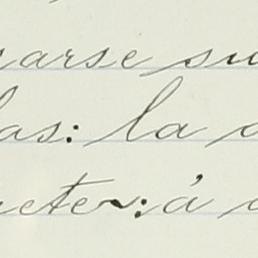 arse su
las: la
eter: á